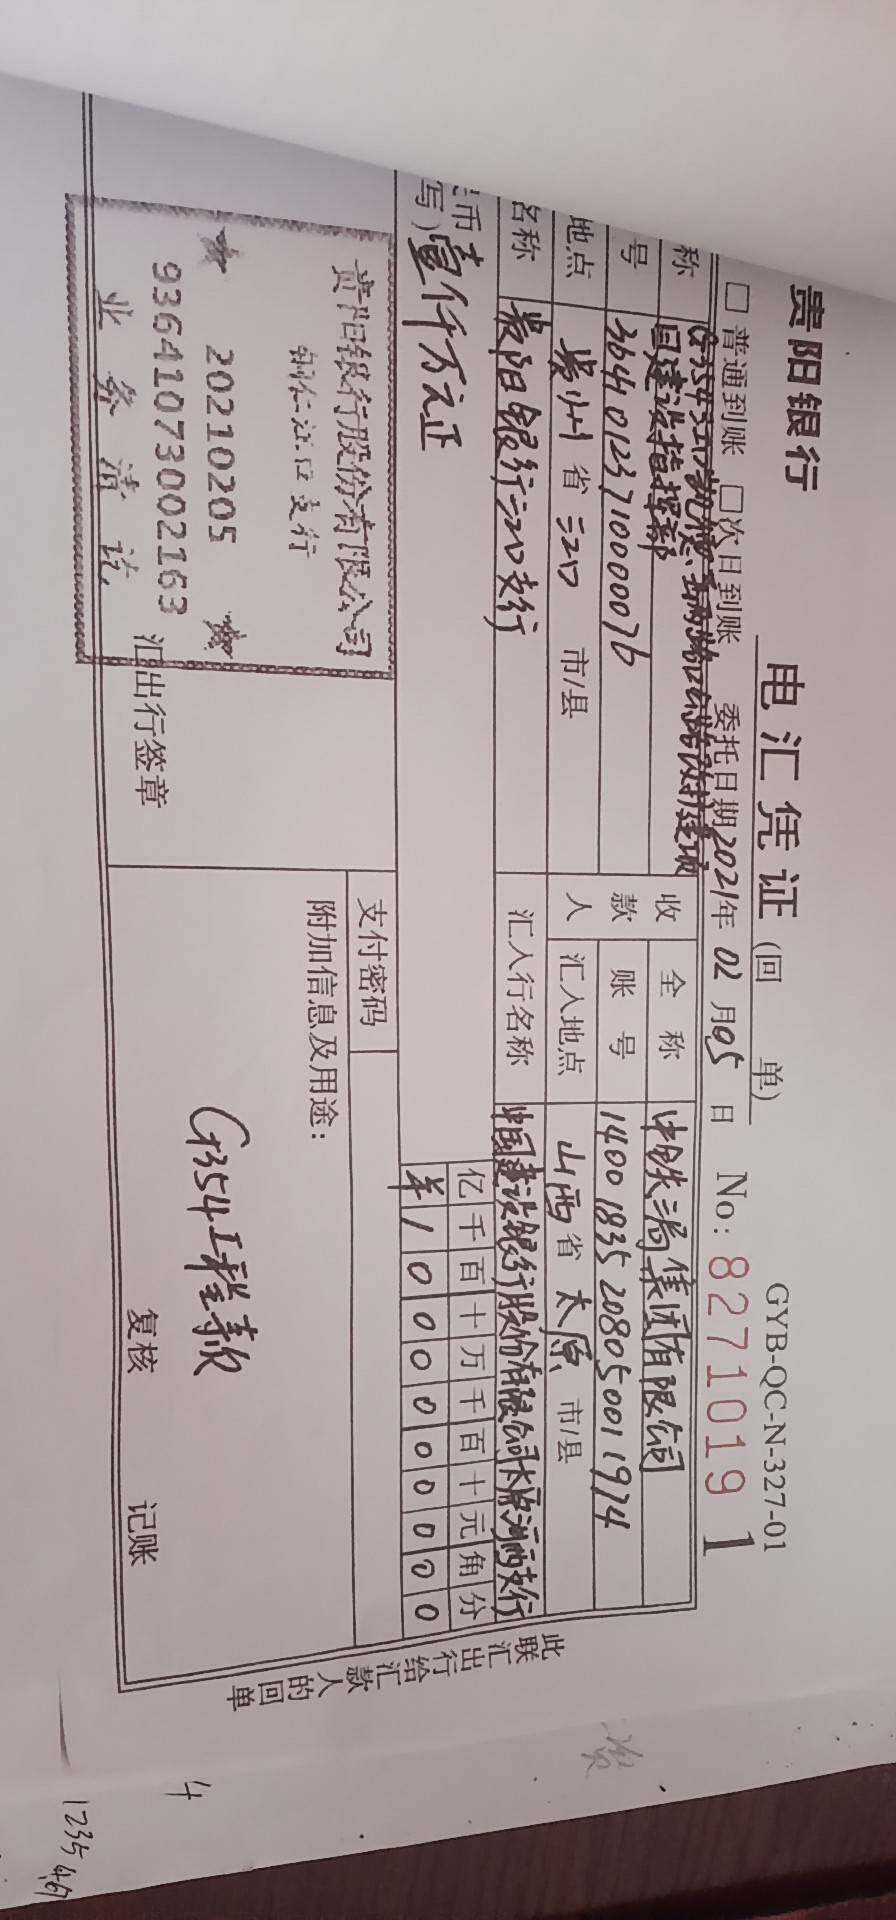 贵阳银行
电汇凭证
(回 单)
GYB-QC-N-327-01
□ 普通到账 □ 次日到账 委托日期 2021年 02 月 05 日
No: 82710191
称
目建设指挥部
收款人
全 称
中铁三局集团有限公司
号
账 号
14001835208050011974
地点
贵州 省 江口 市/县
汇入地点
山西 省 太原 市/县
名称
贵阳银行江口支行
汇入行名称
中国建设银行股份有限公司太原河西支行
币
写)
壹仟万元正
亿千百十万千百十元角分
¥1000000000
支付密码
附加信息及用途:
G354工程款
贵阳银行股份有限公司
铜仁江口支行
20210205
936410730021​63
业务清讫
汇出行签章
复核
记账
此联汇出行给汇款人的回单
4